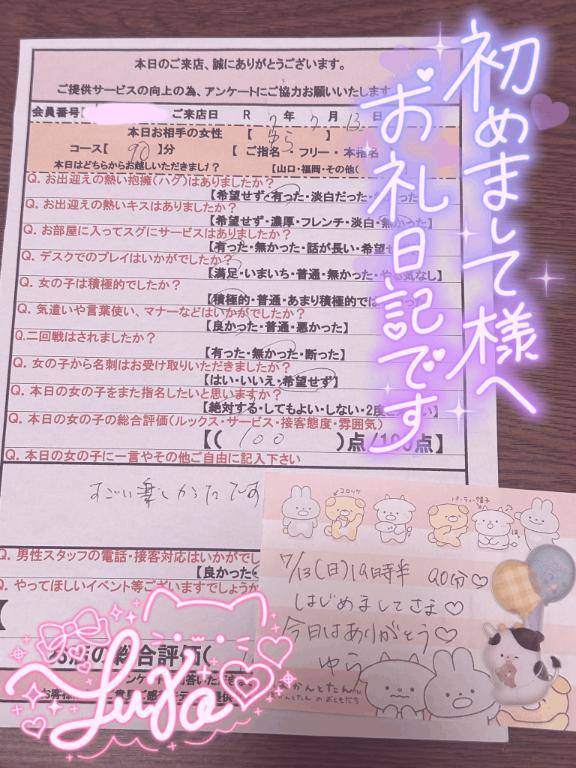 本日のご来店、誠にありがとうございます。
ご提供サービスの向上の為、アンケートにご協力お願いいたします
会員番号 ご来店日 R 7 年 7 月 13 日
本日お相手の女性 【 ゆら
コース【 90 】分 【 ご指名・フリー・本指名
本日はどちらからお越しいただきました? 【山口・福岡・その他(
Q. お出迎えの熱い抱擁(ハグ)はありましたか?
【希望せず・有った・淡白だった・
Q. お出迎えの熱いキスはありましたか?
【希望せず・濃厚・フレンチ・淡白・無かった】
Q. お部屋に入ってスグにサービスはありましたか?
【有った・無かった・話が長い・希望せ
Q. デスクでのプレイはいかがでしたか?
【満足・いまいち・普通・無かった・やる気なし】
Q. 女の子は積極的でしたか?
【積極的・普通・あまり積極的では
Q. 気遣いや言葉使い、マナーなどはいかがでしたか?
【良かった・普通・悪かった】
Q.二回戦はされましたか?
【有った・無かった・断った】
Q. 女の子から名刺はお受け取りいただきましたか?
【はい・いいえ・希望せず】
Q. 本日の女の子をまた指名したいと思いますか?
【絶対する・してもよい・しない・2度
Q. 本日の女の子の総合評価(ルックス・サービス・接客態度・雰囲気)
【( 100 )点/100点】
Q. 本日の女の子に一言やその他ご自由に記入下さい
すごい楽しかったです
Q. 男性スタッフの電話・接客対応はいかがでし
【良かった
Q. やってほしいイベント等ございますでしょうか
総合評価(
初めまして様へ
お礼日記です
コロッケ
パーティー帽子
7/13(日)19時半 90分♡
はじめましてさま♡
今日はありがとう♡
ゆら
Yura